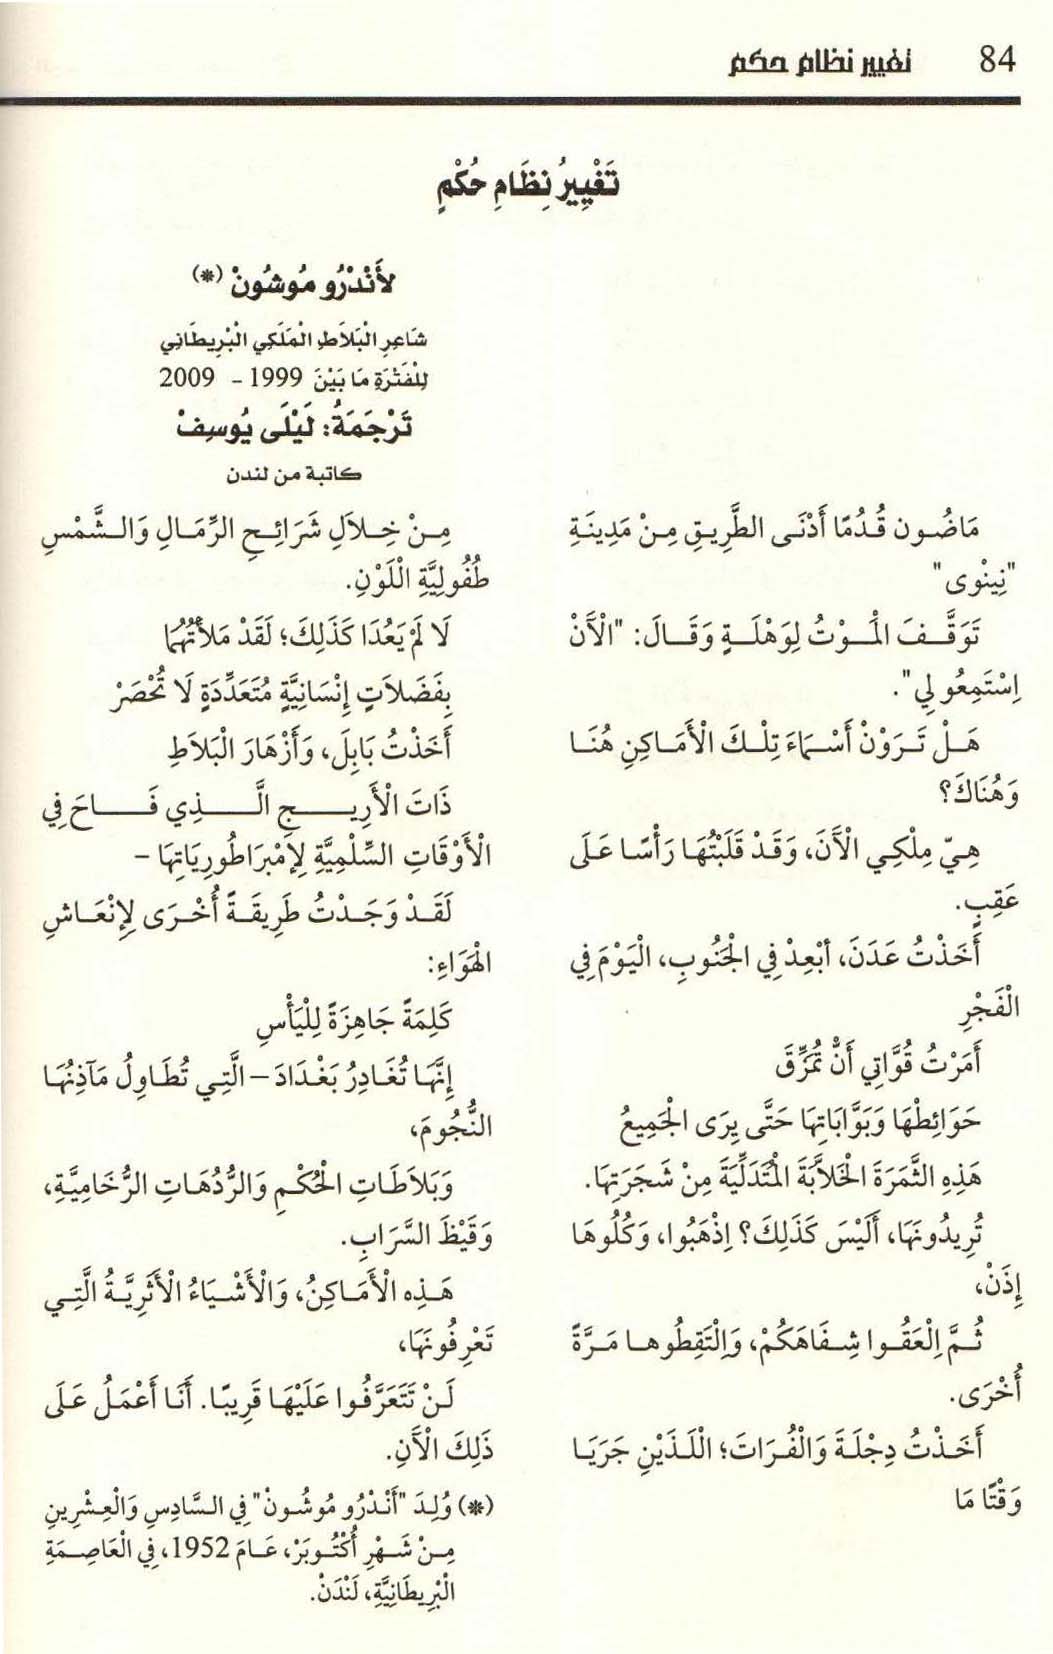 84 تغيير نظام حكم
تَغْيِيرُ نِظَامِ حُكْمٍ
لأَنْدْرُو مُوشُونْ (*)
شَاعِرِ الْبَلاَطِ الْمَلَكِي الْبْرِيطَانِي
لِلْفَتْرَةِ مَا بَيْنَ 1999 - 2009
تَرْجَمَةُ: لَيْلَى يُوسِفْ
كاتبة من لندن
مَاضُون قُدُمًا أَدْنَى الطَّرِيقِ مِنْ مَدِينَةِ
"نِينْوى"
تَوَقَّفَ الْمَوْتُ لِوَهْلَةٍ وَقَالَ: "الْآنْ
اِسْتَمِعُو لِي".
هَلْ تَرَوْنْ أَسْمَاءَ تِلْكَ الْأَمَاكِنِ هُنَا
وَهُنَاكَ؟
هِيّ مِلْكِي الْآنَ، وَقَدْ قَلَبْتُهَا رَأْسًا عَلَى
عَقِبٍ.
أَخَذْتُ عَدَنَ، أَبْعِدْ فِي الْجَنُوبِ، الْيَوْمَ فِي
الْفَجْرِ
أَمَرْتُ قُوَّاتِي أَنْ تُمَزِّقَ
حَوَائِطْهَا وَبَوَّابَاتِهَا حَتَّى يِرَى الْجَمِيعُ
هَذِهِ الثَّمَرَةَ الْخَلاَّبَةَ الْمُتَدَلِّيَةَ مِنْ شَجَرَتِهَا.
تُرِيدُونَهَا، أَلَيْسَ كَذَلِكَ؟ اِذْهَبُوا، وَكُلُوهَا
إِذَنْ،
ثُمَّ اِلْعَقُوا شِفَاهَكُمْ، وَاِلْتَقِطُوها مَرَّةً
أُخْرَى.
أَخَذْتُ دِجْلَةَ وَالْفُرَاتَ؛ اللَّذَيْنِ جَرَيَا
وَقْتًا مَا
مِنْ خِلاَلِ شَرَائِحِ الرِّمَالِ وَالشَّمْسِ
طُفُولِيَّةِ اللَّوْنِ.
لَا لَمْ يَعُدَا كَذَلِكَ؛ لَقَدْ مَلأْتُهُمَا
بِفَضَلاَتٍ إِنْسَانِيَّةٍ مُتَعَدِّدَةٍ لَا تُحْصَرْ
أَخَذْتُ بَابِلَ، وَأَزْهَارَ الْبَلاَطِ
ذَاتَ الْأَرِيجِ الَّذِي فَاحَ فِي
الْأَوْقَاتِ السِّلْمِيَّةِ لِإمْبَراطُورِيَاتِهَا -
لَقَدْ وَجَدْتُ طَرِيقَةً أُخْرَى لِإِنْعَاشِ
الْهَوَاءِ:
كَلِمَةً جَاهِزَةً لِلْيَأْسِ
إِنَّهَا تُغَادِرُ بَغْدَادَ - الَّتِي تُطَاوِلُ مَآذِنُهَا
النُّجُومَ،
وَبَلاَطَاتِ الْحُكْمِ وَالرُّدُهَاتِ الرُّخَامِيَّةِ،
وَقَيْظَ السَّرَابِ.
هَذِه الْأَمَاكِنُ، وَالْأَشْيَاءُ الْأَثَرِيَّةُ الَّتِي
تَعْرِفُونَهَا،
لَنْ تَتَعَرَّفُوا عَلَيْهَا قَرِيبًا. أَنَا أَعْمَلُ عَلَى
ذَلِكَ الْآنِ.
(*) وُلِدَ "أَنْدْرُو مُوشُونْ" فِي السَّادِسِ وَالْعِشْرِينِ
مِنْ شَهْرِ أُكْتُوبَرْ، عَامَ 1952، فِي الْعَاصِمَةِ
الْبْرِيطَانِيَّةِ، لَنْدَنْ.